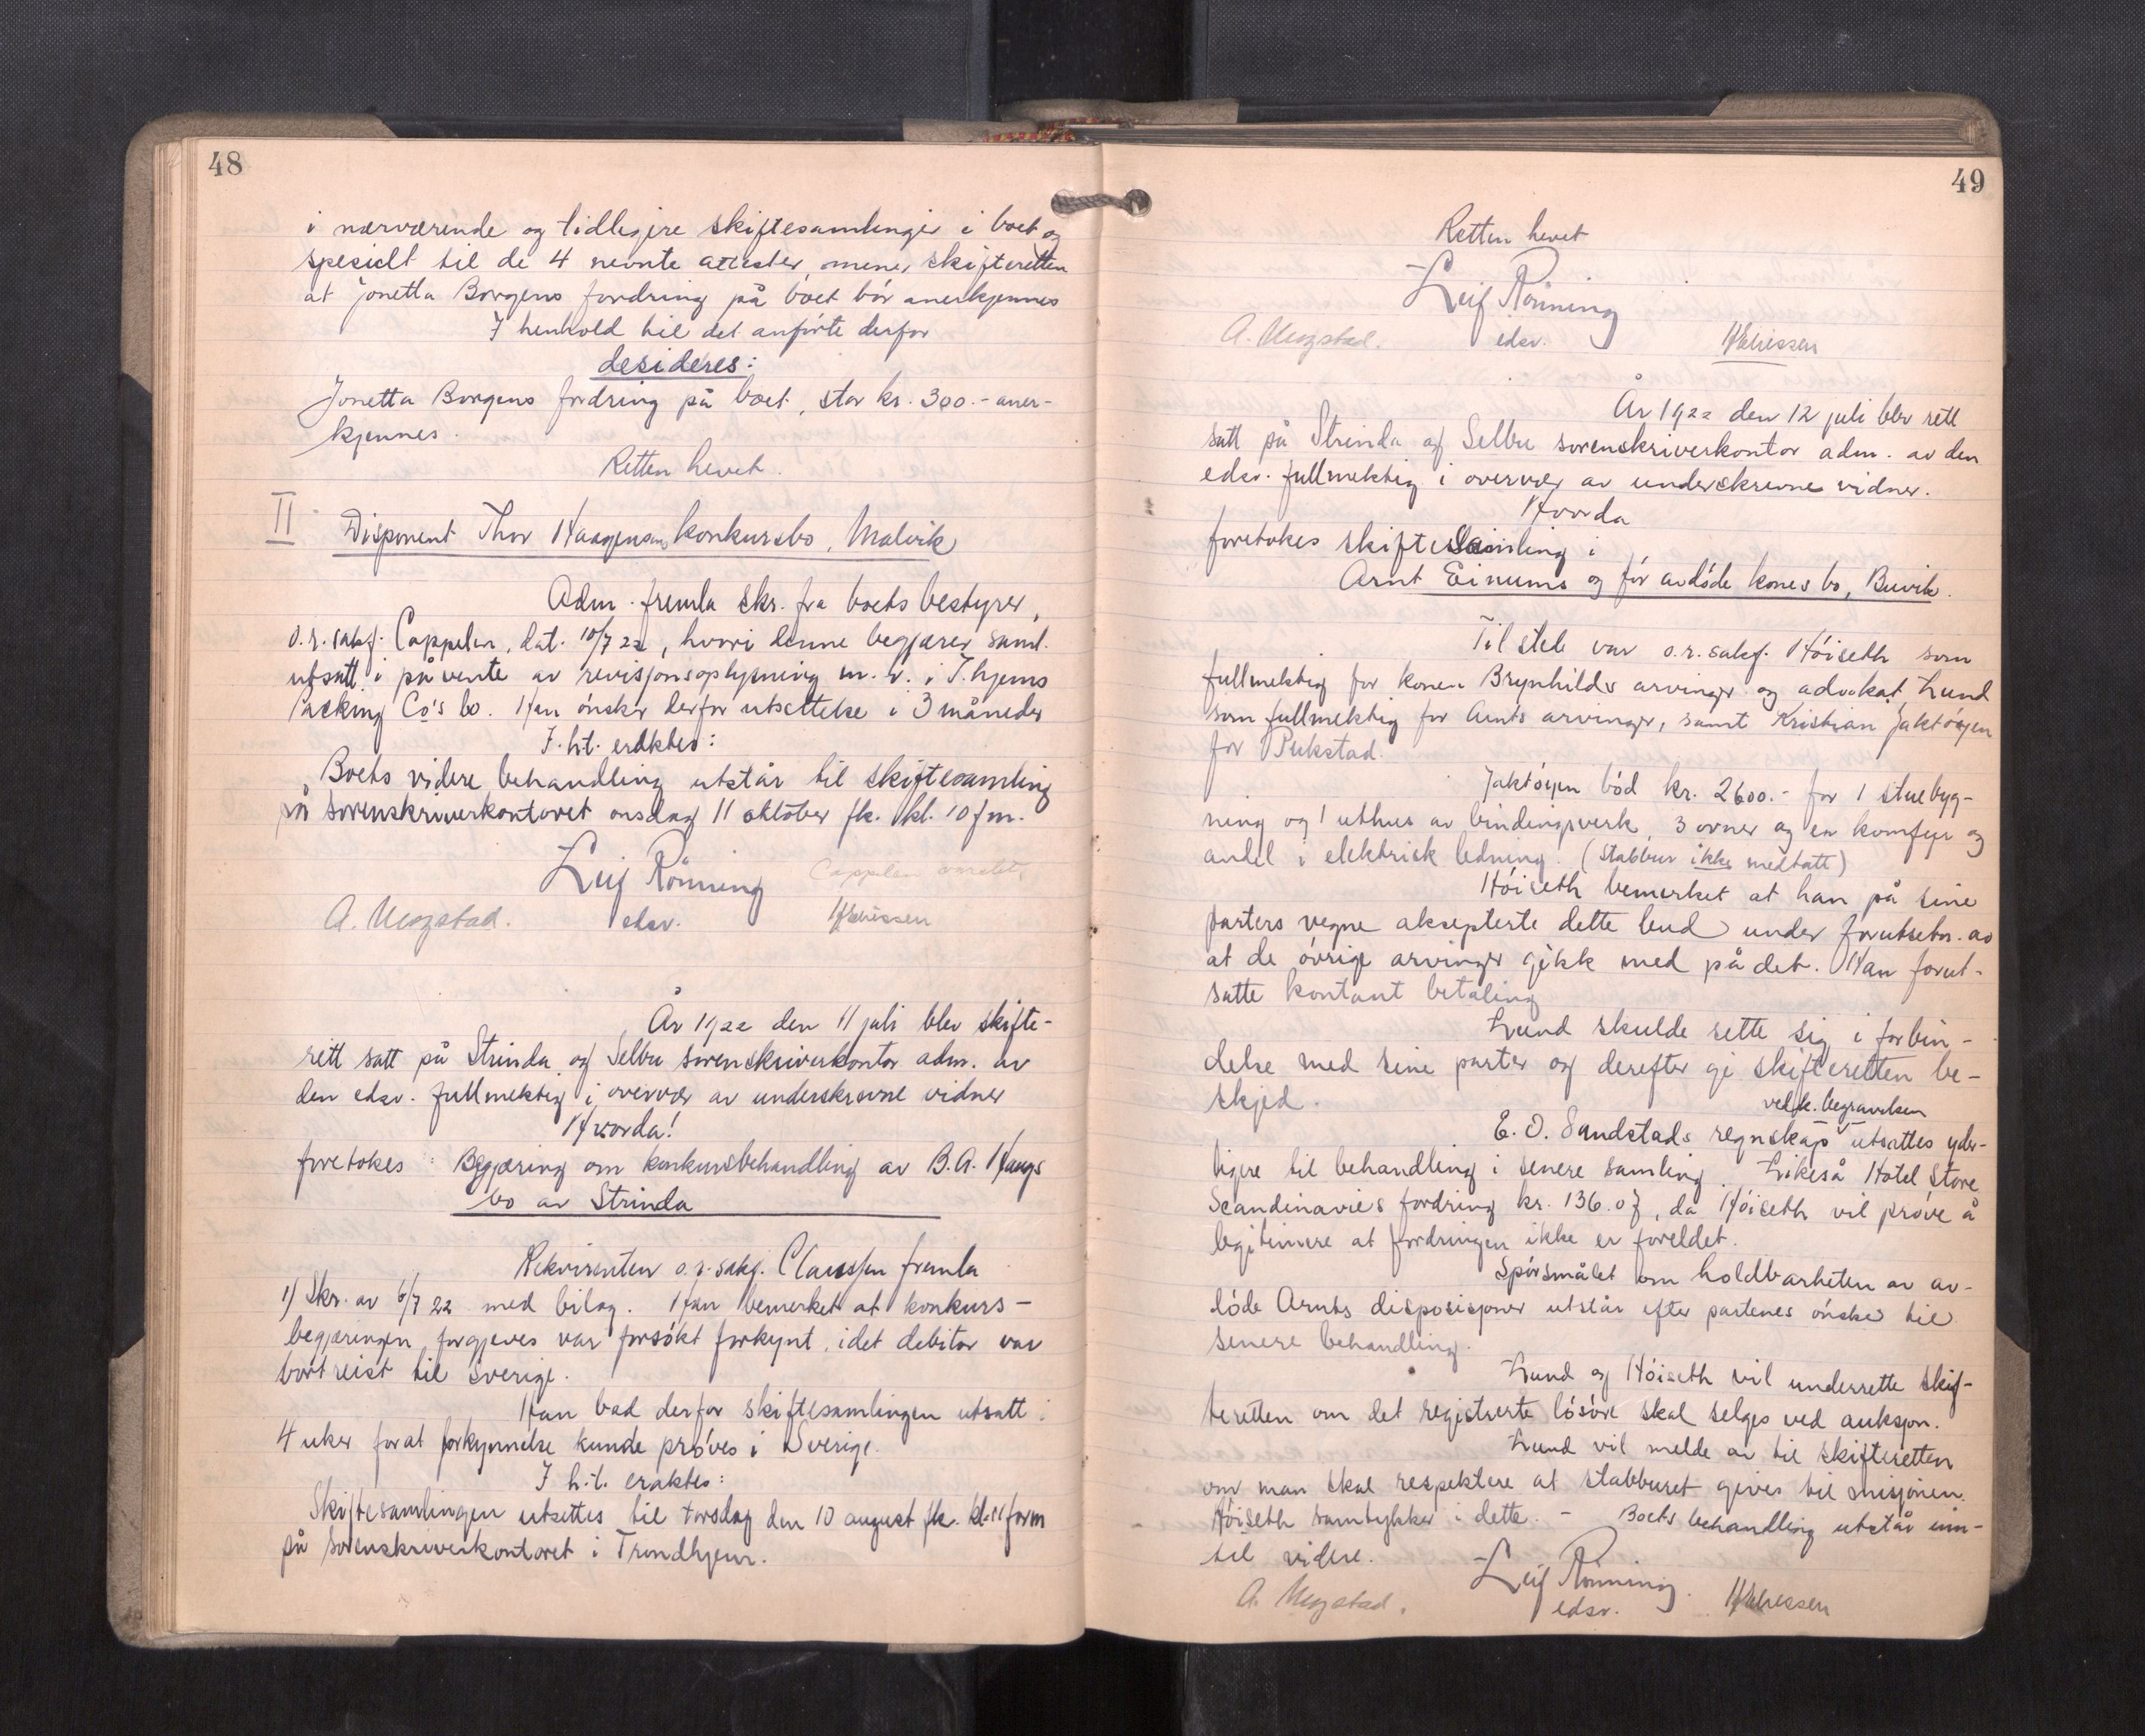 48
i nærværende og tidligere skiftesamlinger i boet og
spesielt til de 4 nevnte attester, mener skifteretten
at Jonetta Borgens fordring på boet bör anerkjennes
I henhold til det anförte derfor
desideres:
Jonetta Borgens fordring på boet, stor kr. 300.- aner-
kjennes.
Retten hevet.
II Disponent Thor Haagensens konkursbo, Malvik
Adm. fremla skr. fra boets bestyrer,
o.r.sakf. Cappelen, dat. 10/7 22, hvori denne begjærer saml.
utsatt i påvente av revisjonsoplysning m.v. i T.hjems
Packing Co's bo. Han önsker derfor utsettelse i 3 måneder
I h.t. eraktes:
Boets videre behandling utstår til skiftesamling
på sorenskriverkontoret onsdag 11 oktober fk. kl. 10 fm.
Leif Rönning
Cappelen varslet
A. Mogstad.
edsv.
År 1922 den 11 juli blev skifte-
rett satt på Strinda og Selbu sorenskriverkontor adm. av
den edsv. fullmektig i overvær av underskrevne vidner
Hvorda!
foretokes: Begjæring om konkursbehandling av B.A. Haugs
bo av Strinda
Rekvirenten o.r.sakf. Claussen fremla
1) Skr. av 6/7 22 med bilag. Han bemerket at konkurs-
begjæringen forgjeves var forsökt forkynt, idet debitor var
bortreist til Sverige.
Han bad derfor skiftesamlingen utsatt i
4 uker forat forkynnelse kunde pröves i Sverige.
I h.t. eraktes:
Skiftesamlingen utsettes til torsdag den 10 august fk. kl. 11 form
på sorenskriverkontoret i Trondhjem.
49
Retten hevet
Leif Rönning
A. Mogstad.
edsv.
År 1922 den 12 juli blev rett
satt på Strinda og Selbu sorenskriverkontor adm. av den
edsv. fullmektig i overvær av underskrevne vidner.
Hvorda
foretokes skiftesamling i
Arnt Einums og för avdöde kones bo, Buvik.
Tilstede var o.r.sakf. Höiseth som
fullmektig for konen Brynhilds arvinger og advokat Lund
som fullmektig for Arnts arvinger, samt Kristian Jaktöyen
for Pukstad.
Jaktöyen böd kr. 2600.- for 1 stuebyg-
ning og 1 uthus av bindingsverk, 3 ovner og en komfyr og
andel i elektrisk ledning. (Stabbur ikke medtatt)
Höiseth bemerket at han på sine
parters vegne aksepterte dette bud under forutsetn. av
at de övrige arvinger gikk med på det. Han forut-
satte kontant betaling
Lund skulde sette sig i forbin-
delse med sine parter og derefter gi skifteretten be-
skjed.
vedk. begravelsen
E. O. Sandstads regnskap utsattes yder-
ligere til behandling i senere samling. Likeså Hotel Store
Scandinavies fordring kr. 136.07, da Höiseth vil pröve å
legitimere at fordringen ikke er foreldet.
Spörsmålet om holdbarheten av av-
döde Arnts disposisjoner utstår efter partenes önske til
senere behandling.
Lund og Höiseth vil underrette skif-
teretten om det registrerte lösöre skal selges ved auksjon.
Lund vil melde av til skifteretten
om man skal respektere at stabburet gives til misjonen.
Höiseth samtykker i dette. - Boets behandling utstår inn-
til videre.
Leif Rönning.
A. Mogstad.
edsv.